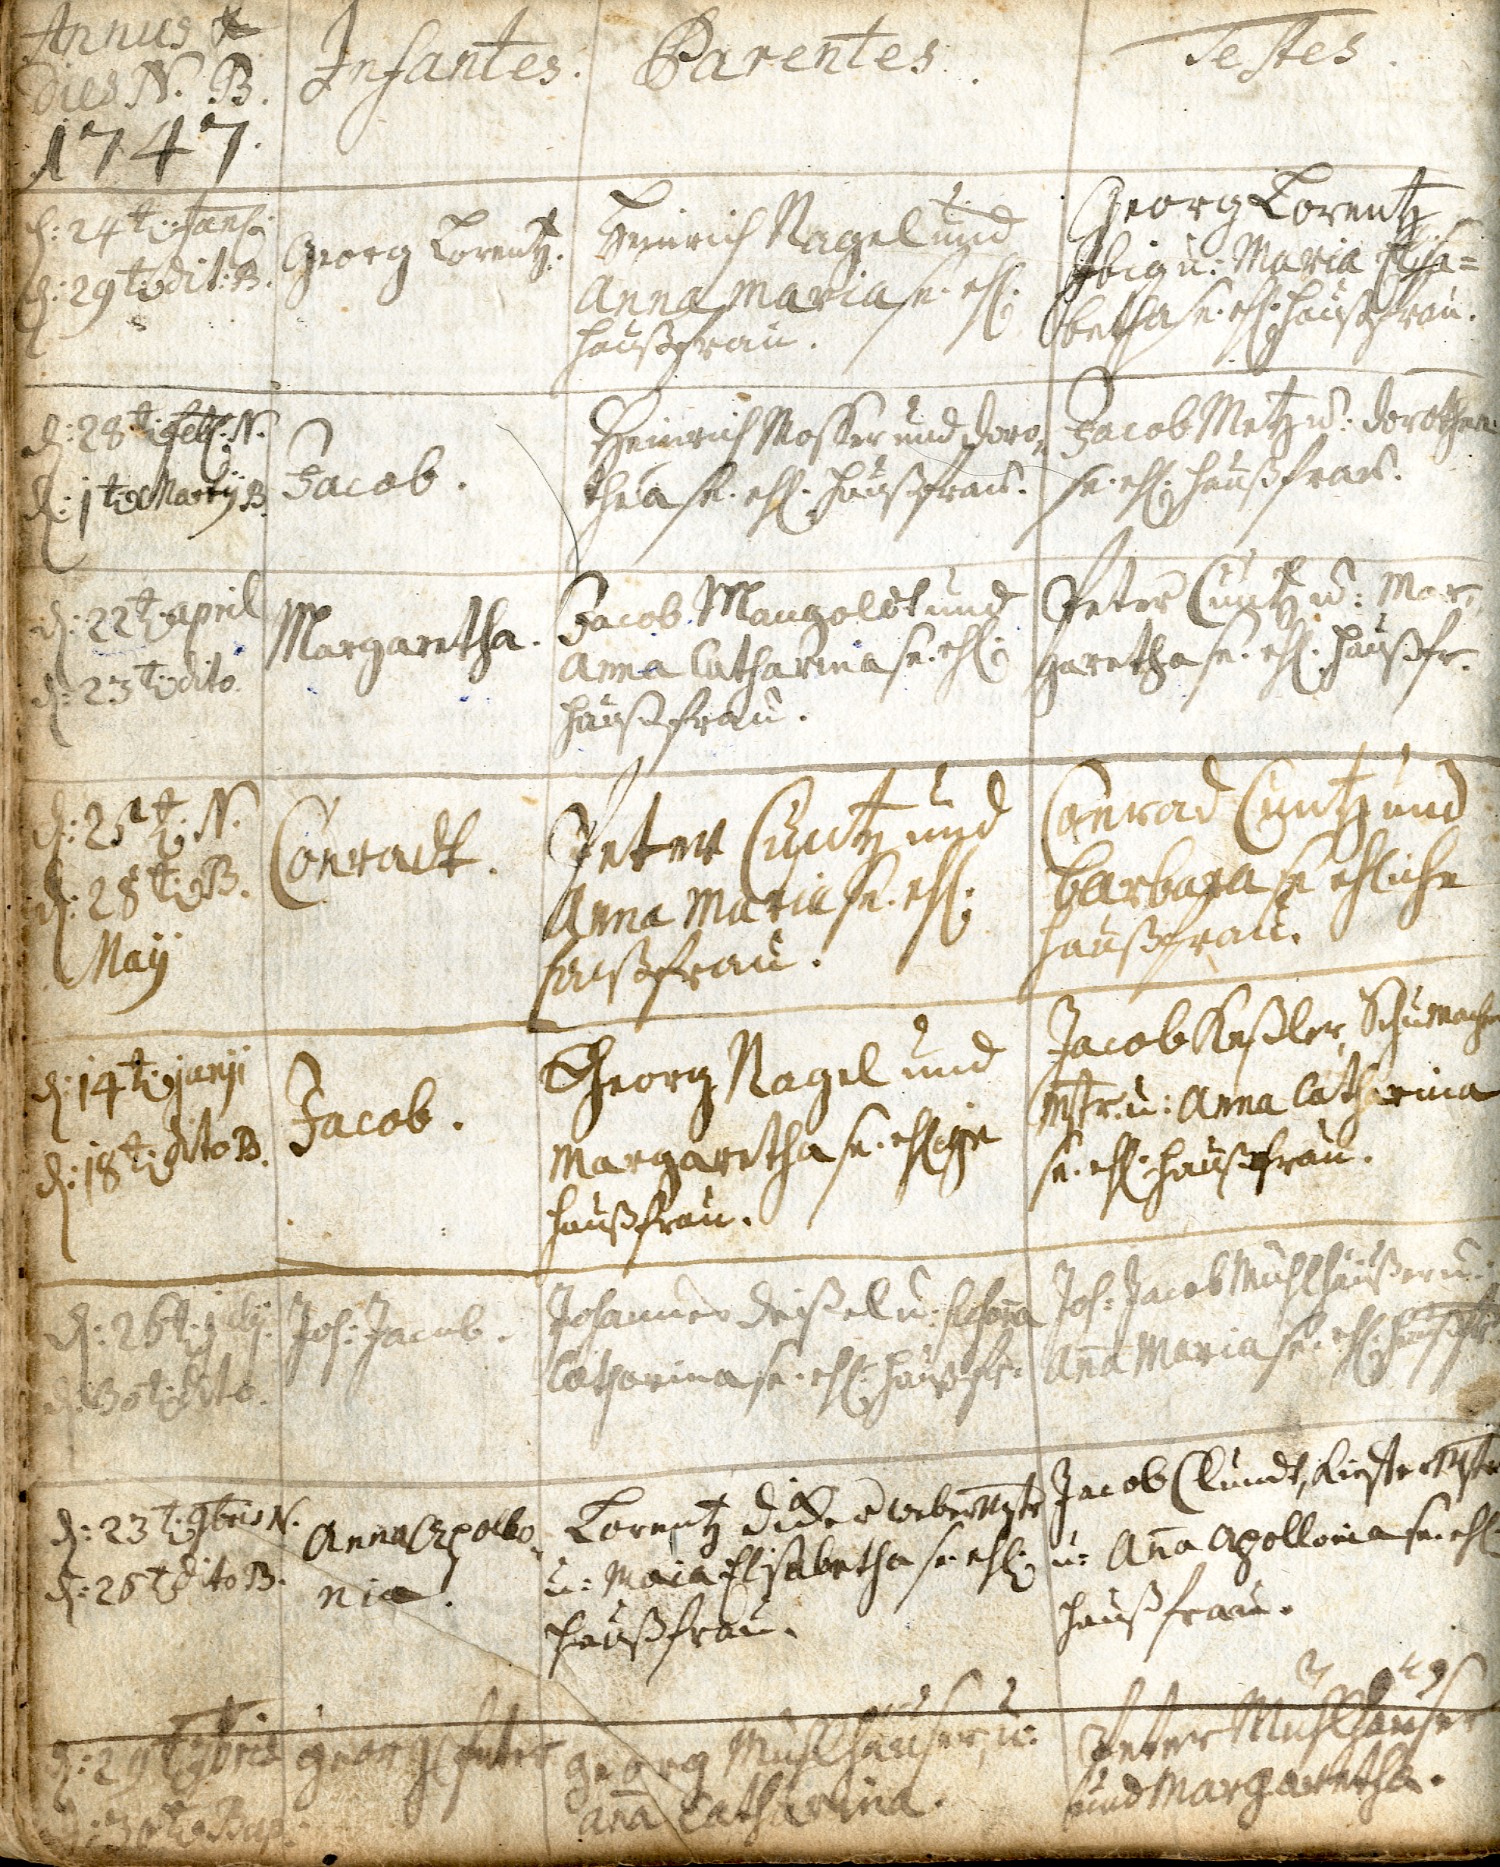 Annus &
dies N. B.
1747.
Infantes.
Parentes.
Testes.
d: 24t: Jan:
d: 29t: dit: B.
Georg Lorentz.
Heinrich Nagel und
Anna Maria se. ehl:
haußfrau.
Georg Lorentz
u: Maria Elisa=
betha se. ehl: haußfrau.
d: 28t: Feb: N.
d: 1t: Martij B.
Jacob.
Heinrich Mosser und Doro,
thea se. ehl: haußfrau.
Jacob Metz u: Dorothea
se. ehl: haußfrau.
d: 22t: april
d: 23t: dito.
Margaretha.
Jacob Mangoldt und
Anna Catharina se. ehl:
haußfrau.
Peter Cuntz u: Mar,
garetha se. ehl: haußfr.
d: 25t: N.
d: 28t: B.
Maij
Conradt.
Peter Cuntz und
Anna Maria se. ehl:
haußfrau.
Conrad Cuntz und
Barbara se ehliche
haußfrau.
d: 14t:
d: 18t: dito B.
Jacob.
Georg Nagel und
Margaretha se.
haußfrau.
Jacob Keßler, Schumacher
Mstr. u: Anna Catharina
se. ehl: haußfrau.
d: 26t: july.
d: 30t: dito.
Joh: Jacob.
Johannes u:
Catharina se. ehl: haußfr.
Joh: Jacob Mühlhäußer u:
Aña Maria se. ehl: haußfr.
d: 23t: 9bris N.
d: 26t: dito B.
Anna Apollo,
nia.
Lorentz weber Mstr
u: Maria Elisabetha se. ehl:
haußfrau.
Jacob Clundt, Mstr
u: Aña Apollonia se. ehl:
haußfrau.
d: 29t: 9bris
d: 30t: Bap:
georg Peter
georg Mühlhäuser, u:
aña Catharina.
Peter Mühlhäuser
und Margaretha.